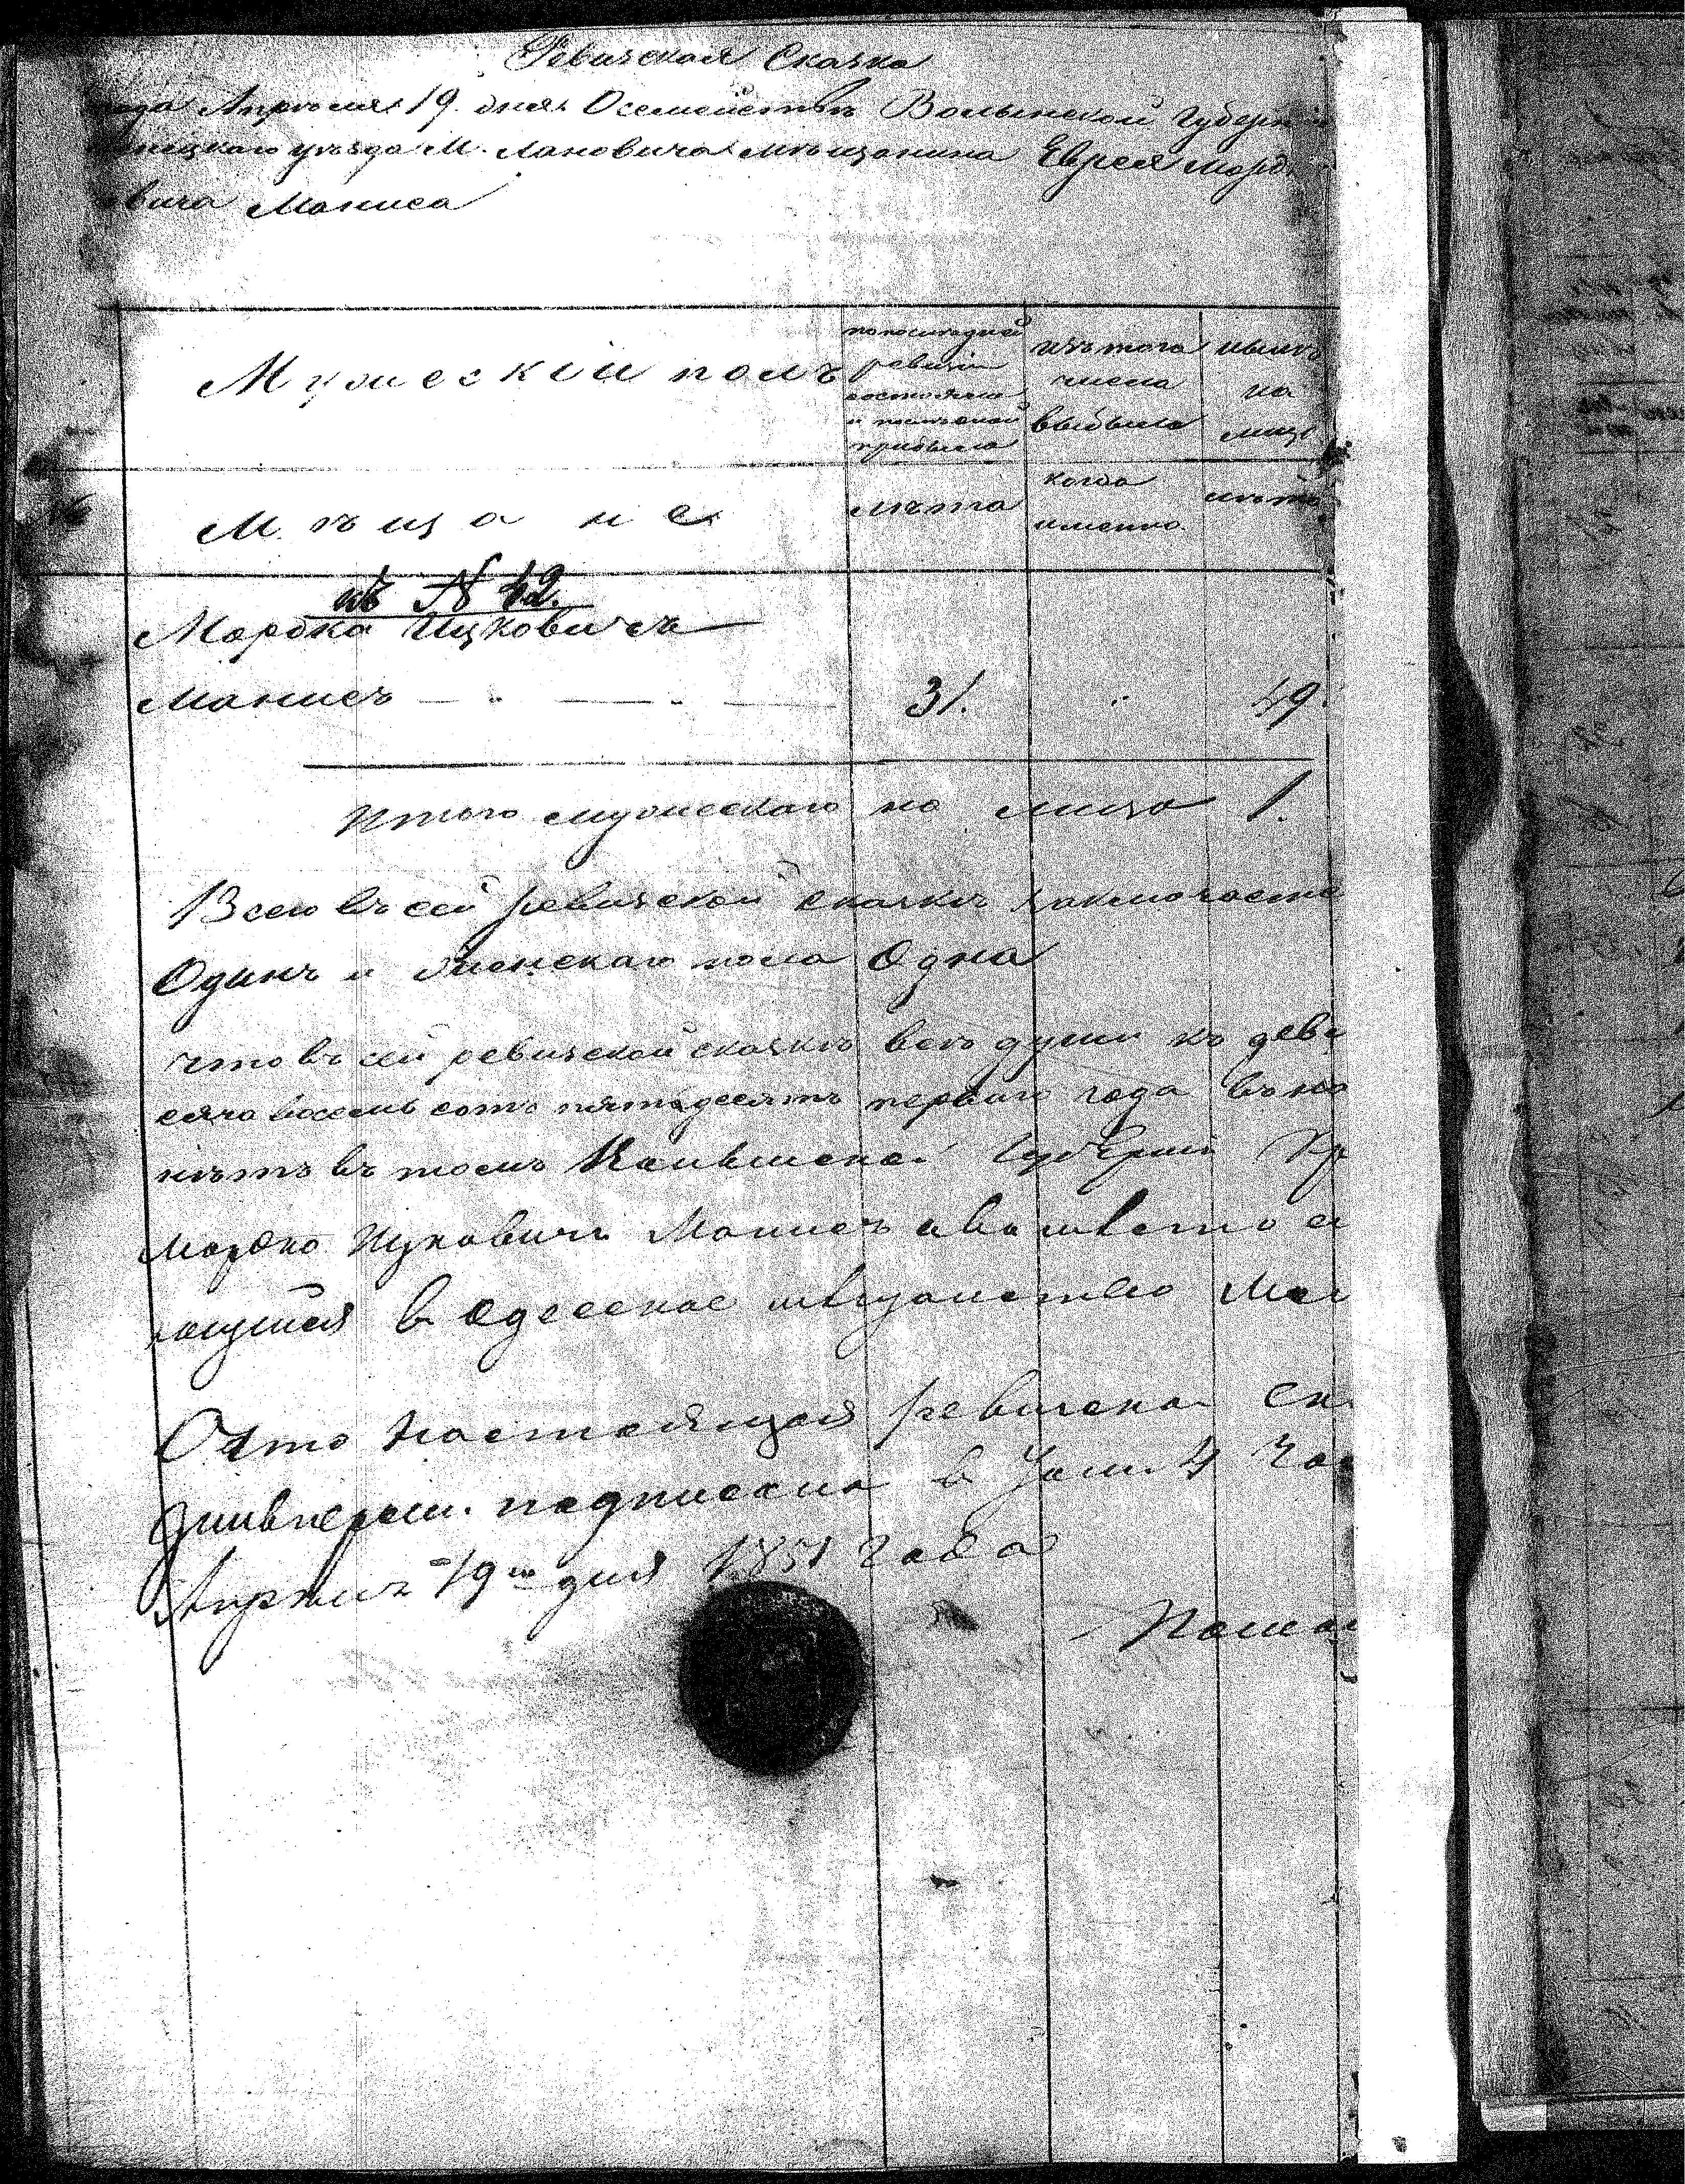 Ревизская Сказка
года Апреля 19. дня О семействѣ Волынской Губерн
уѣзда М. Лановича мѣщанина Еврея Морд
вича Маниса
Мужескій полъ
по последней ревизіи состояло и после оной прибыло
изъ того числа выбыло
нынѣ на лицо
Мѣщане
лѣта
когда именно
лѣта
къ № 42.
Мордко Ицковичъ
Манисъ 31. 49.
Итого мужескаго на лицо 1.
Всего въ сей ревизской сказкѣ заключается
Одинъ и женскаго пола Одна
что въ сей ревизской сказкѣ всѣ души къ девя
сяча восемь сотъ пятьдесятъ перваго года въ на
нѣтъ въ томъ Волынской Губерніи Кр
Мордко Ицковичъ Манисъ а вместо
в Одесское мѣщанство
О что настоящая ревизская ск
подписана в 4 час
Апрѣля 19го дня 1851 Года